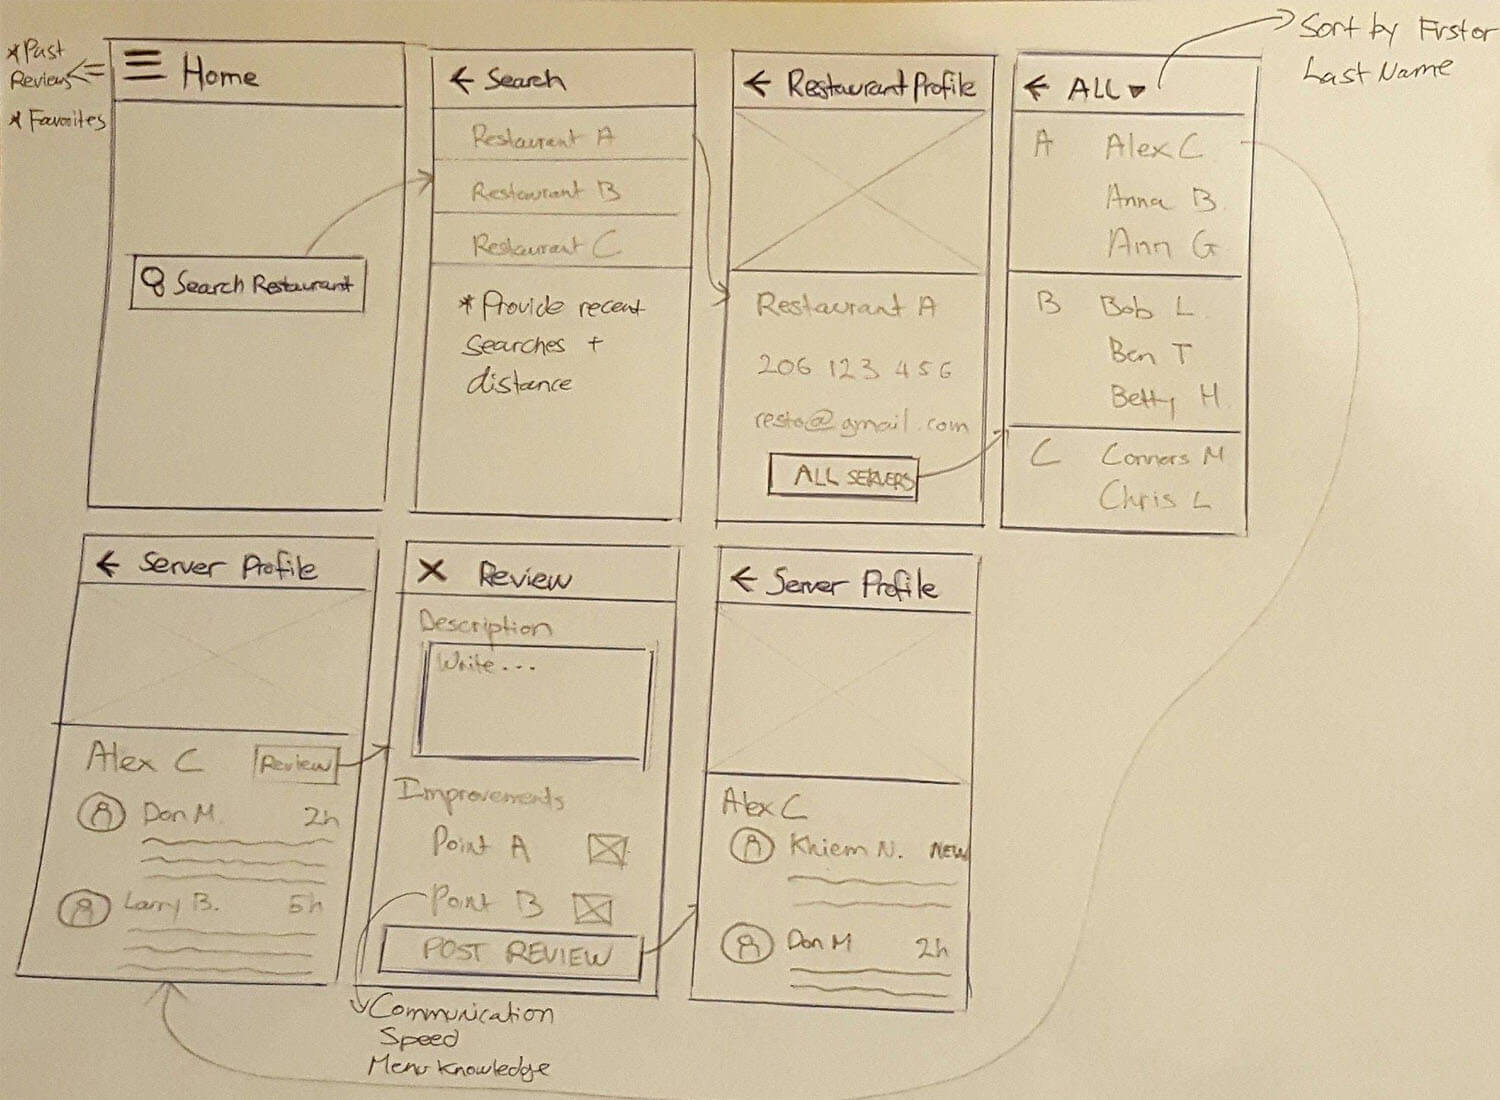 *Past
Reviews
* Favorites
Home
Search Restaurant
Search
Restaurant A
Restaurant B
Restaurant C
*Provide recent
searches +
distance
Restaurant Profile
Restaurant A
206 123 456
resto@gmail.com
ALL SERVERS
ALL
Sort by First or
Last Name
A Alex C
Anna B.
Ann G
B Bob L.
Ben T
Betty H.
C Connors M
Chris L
Server Profile
Alex C Review
Don M. 2h
Larry B. 5h
X Review
Description
Write...
Improvements
Point A
Point B
POST REVIEW
Communication
Speed
Menu Knowledge
Server Profile
Alex C
Khiem N. NEW
Don M 2h